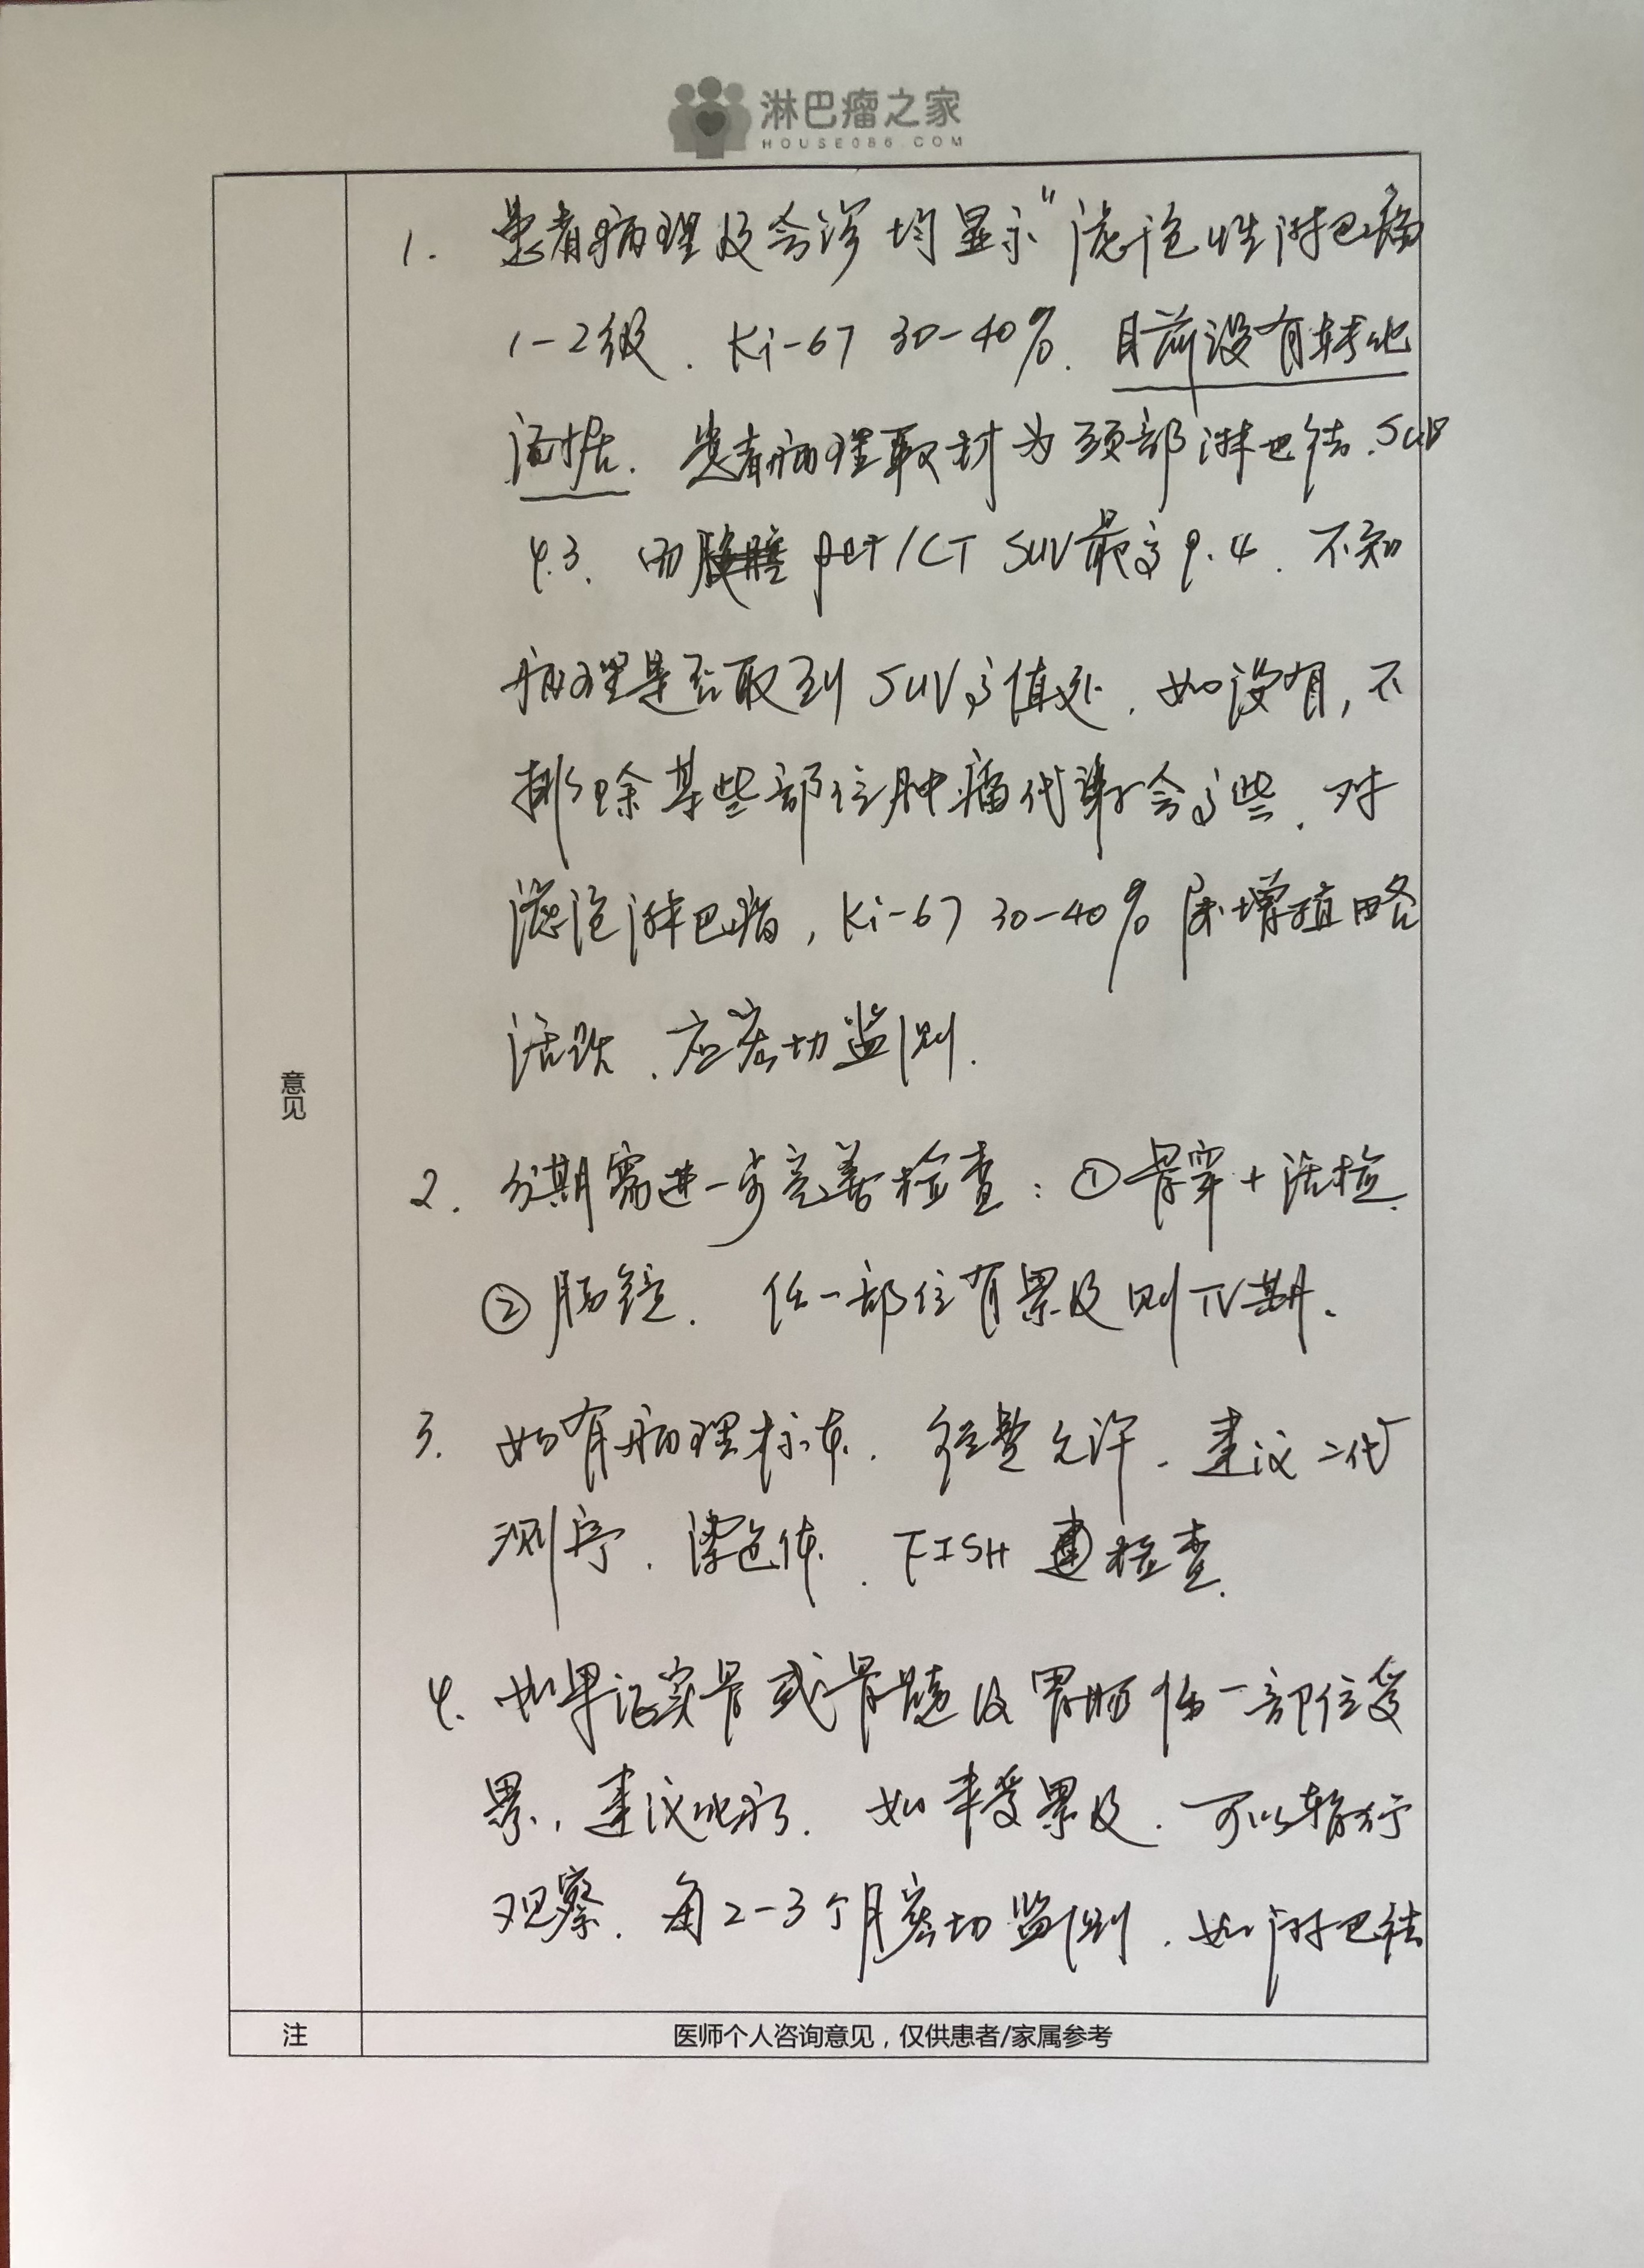 淋巴瘤之家
HOUSE086.COM
意见
1. 患者病理及会诊均显示"滤泡性淋巴瘤
1-2级. Ki-67 30-40%. 目前没有转化
证据. 患者病理取材为颈部淋巴结. SUV
4.3. 而 PET/CT SUV最高9.4. 不知
病理是否取到SUV高值处. 如没有, 不
排除某些部位肿瘤代谢会高些. 对
滤泡淋巴瘤, Ki-67 30-40% 属增殖略
活跃. 应密切监测.
2. 分期需进一步完善检查: ①骨穿+活检.
②肠镜. 任一部位有累及则IV期.
3. 如有病理标本. 经费允许. 建议二代
测序. 染色体. FISH 检查.
4. 如果证实骨或骨髓及胃肠任一部位受
累, 建议化疗. 如未受累及. 可以暂行
观察. 每2-3个月密切监测. 如淋巴结
注
医师个人咨询意见，仅供患者/家属参考